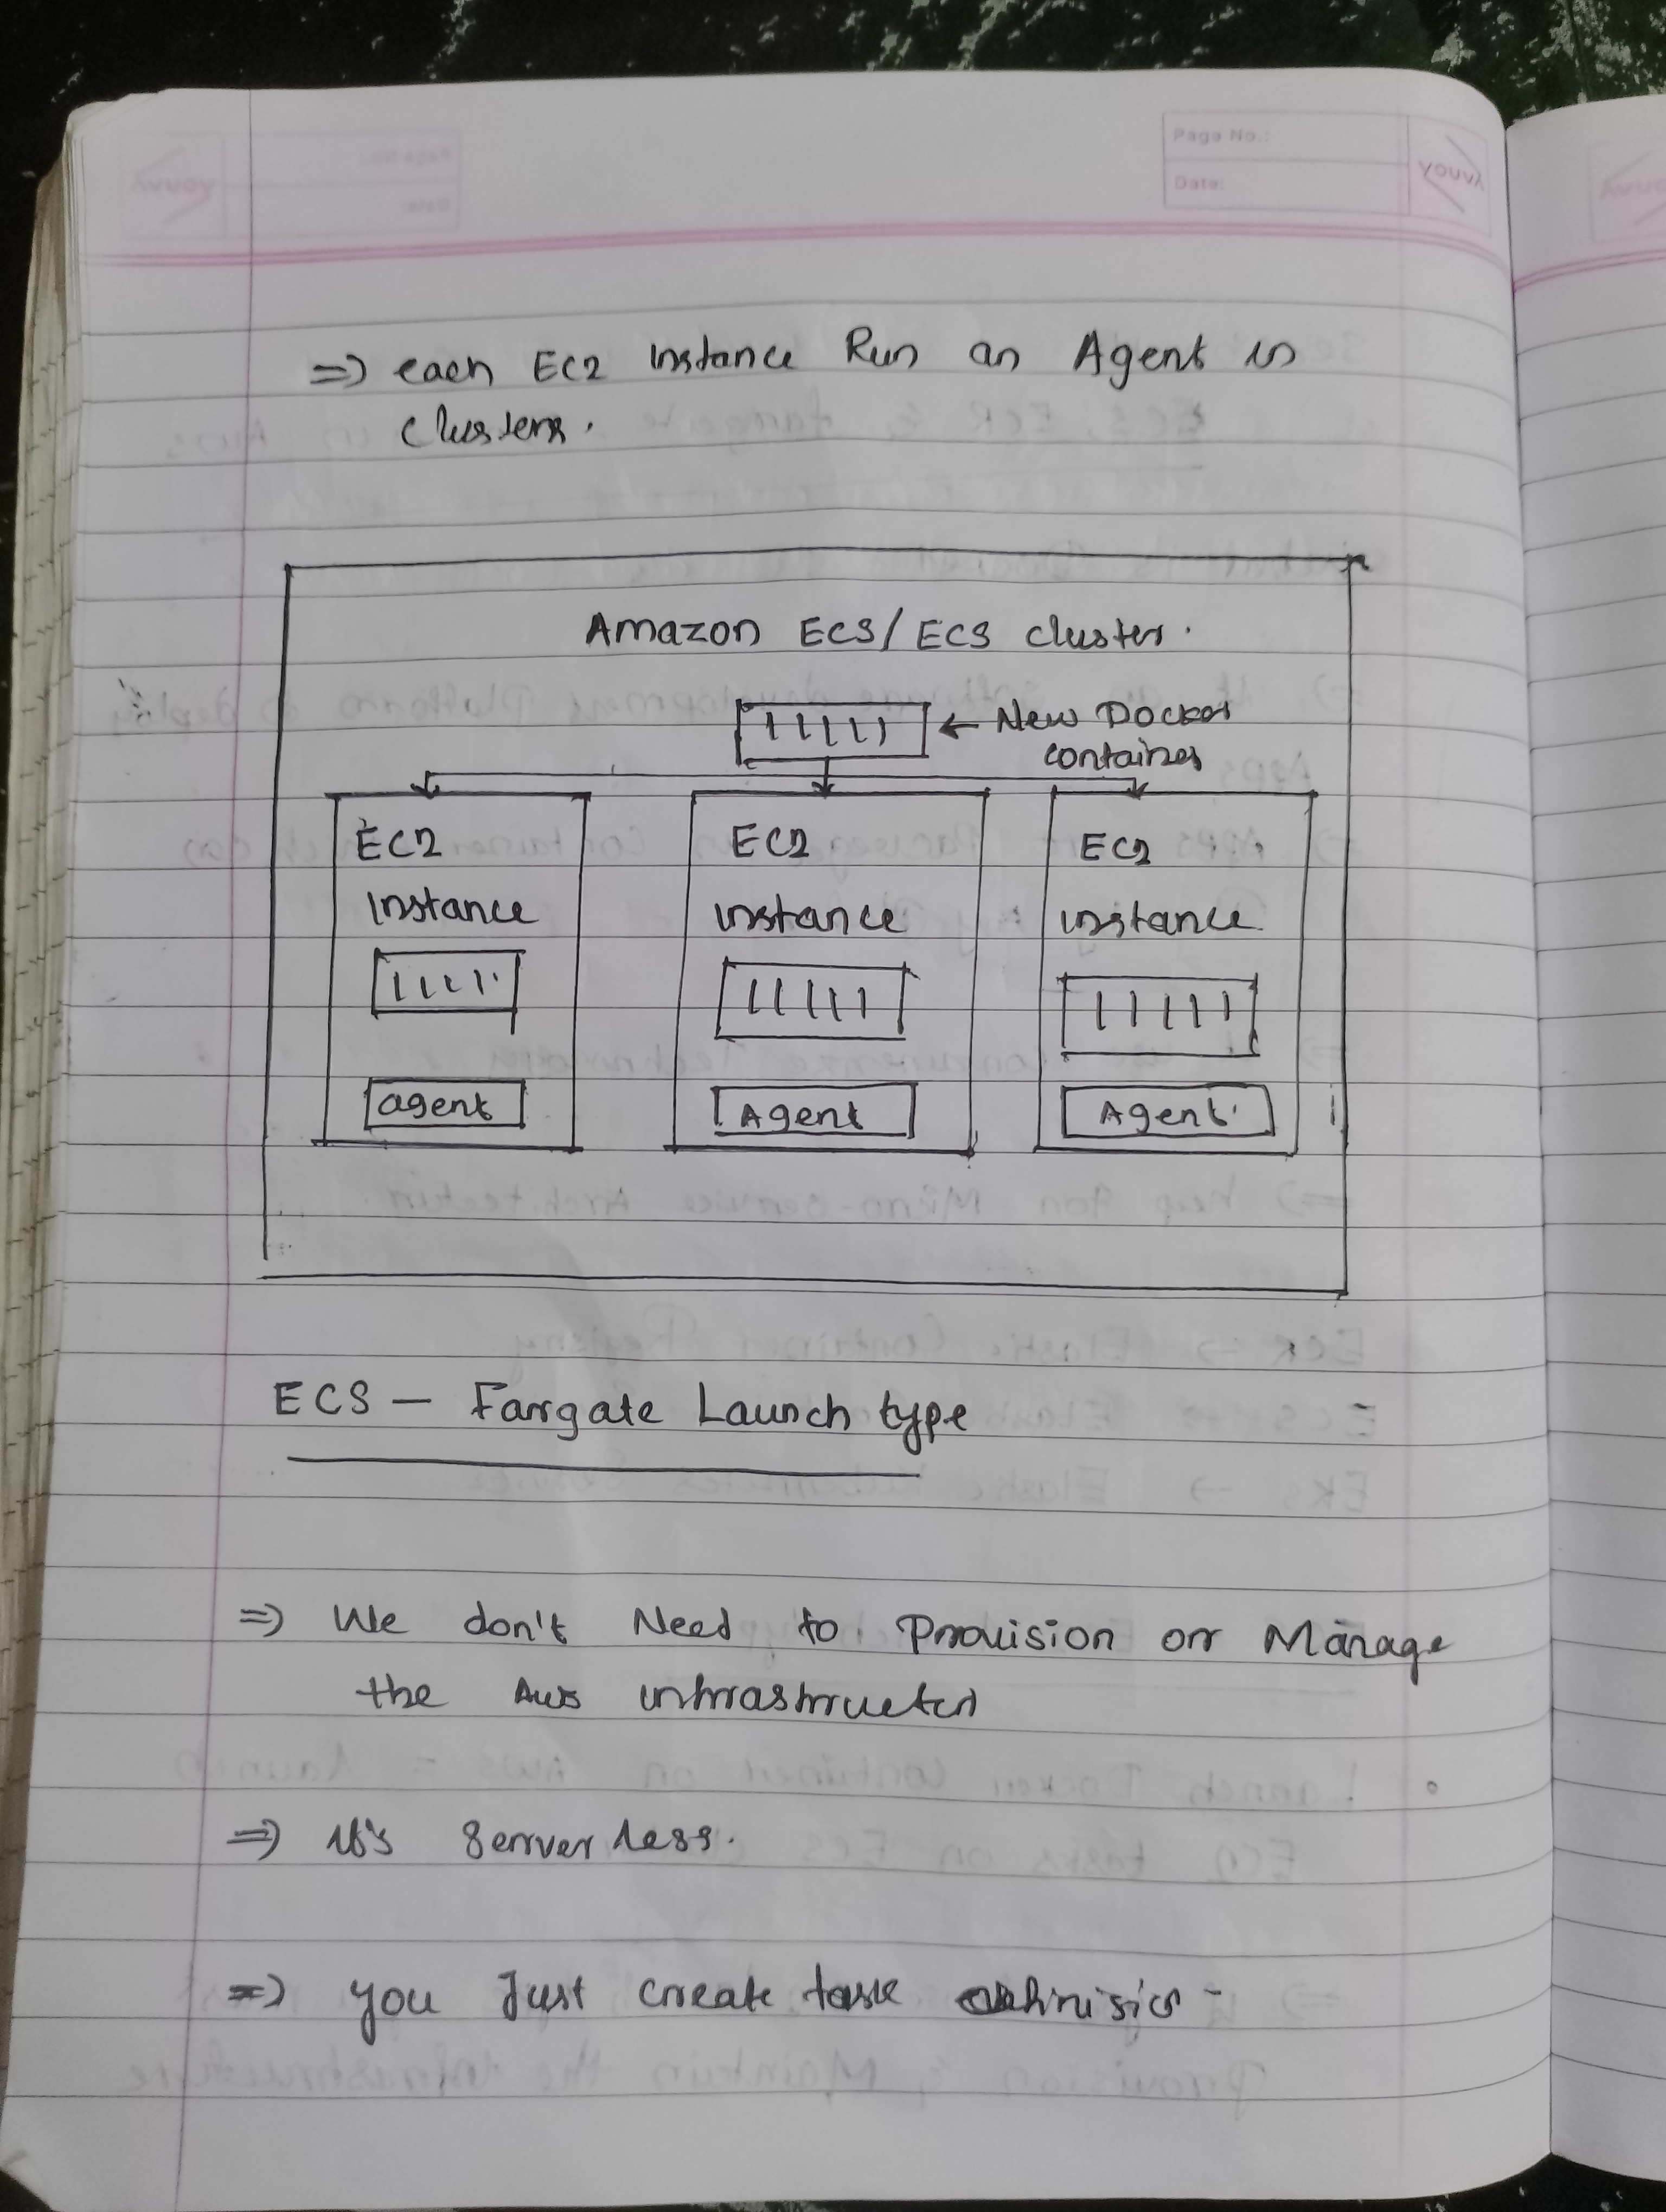 Page No.:
Date:
Yuvvy
=> each EC2 instance Run an Agent in
clusters.
Amazon ECS/ECS cluster.
← New Docker
container
EC2 EC2 EC2
instance instance instance
agent Agent Agent
ECS — Fargate Launch type
=> We don't Need to Provision or Manage
the Aws
=> it's Serverless.
=> you Just create task